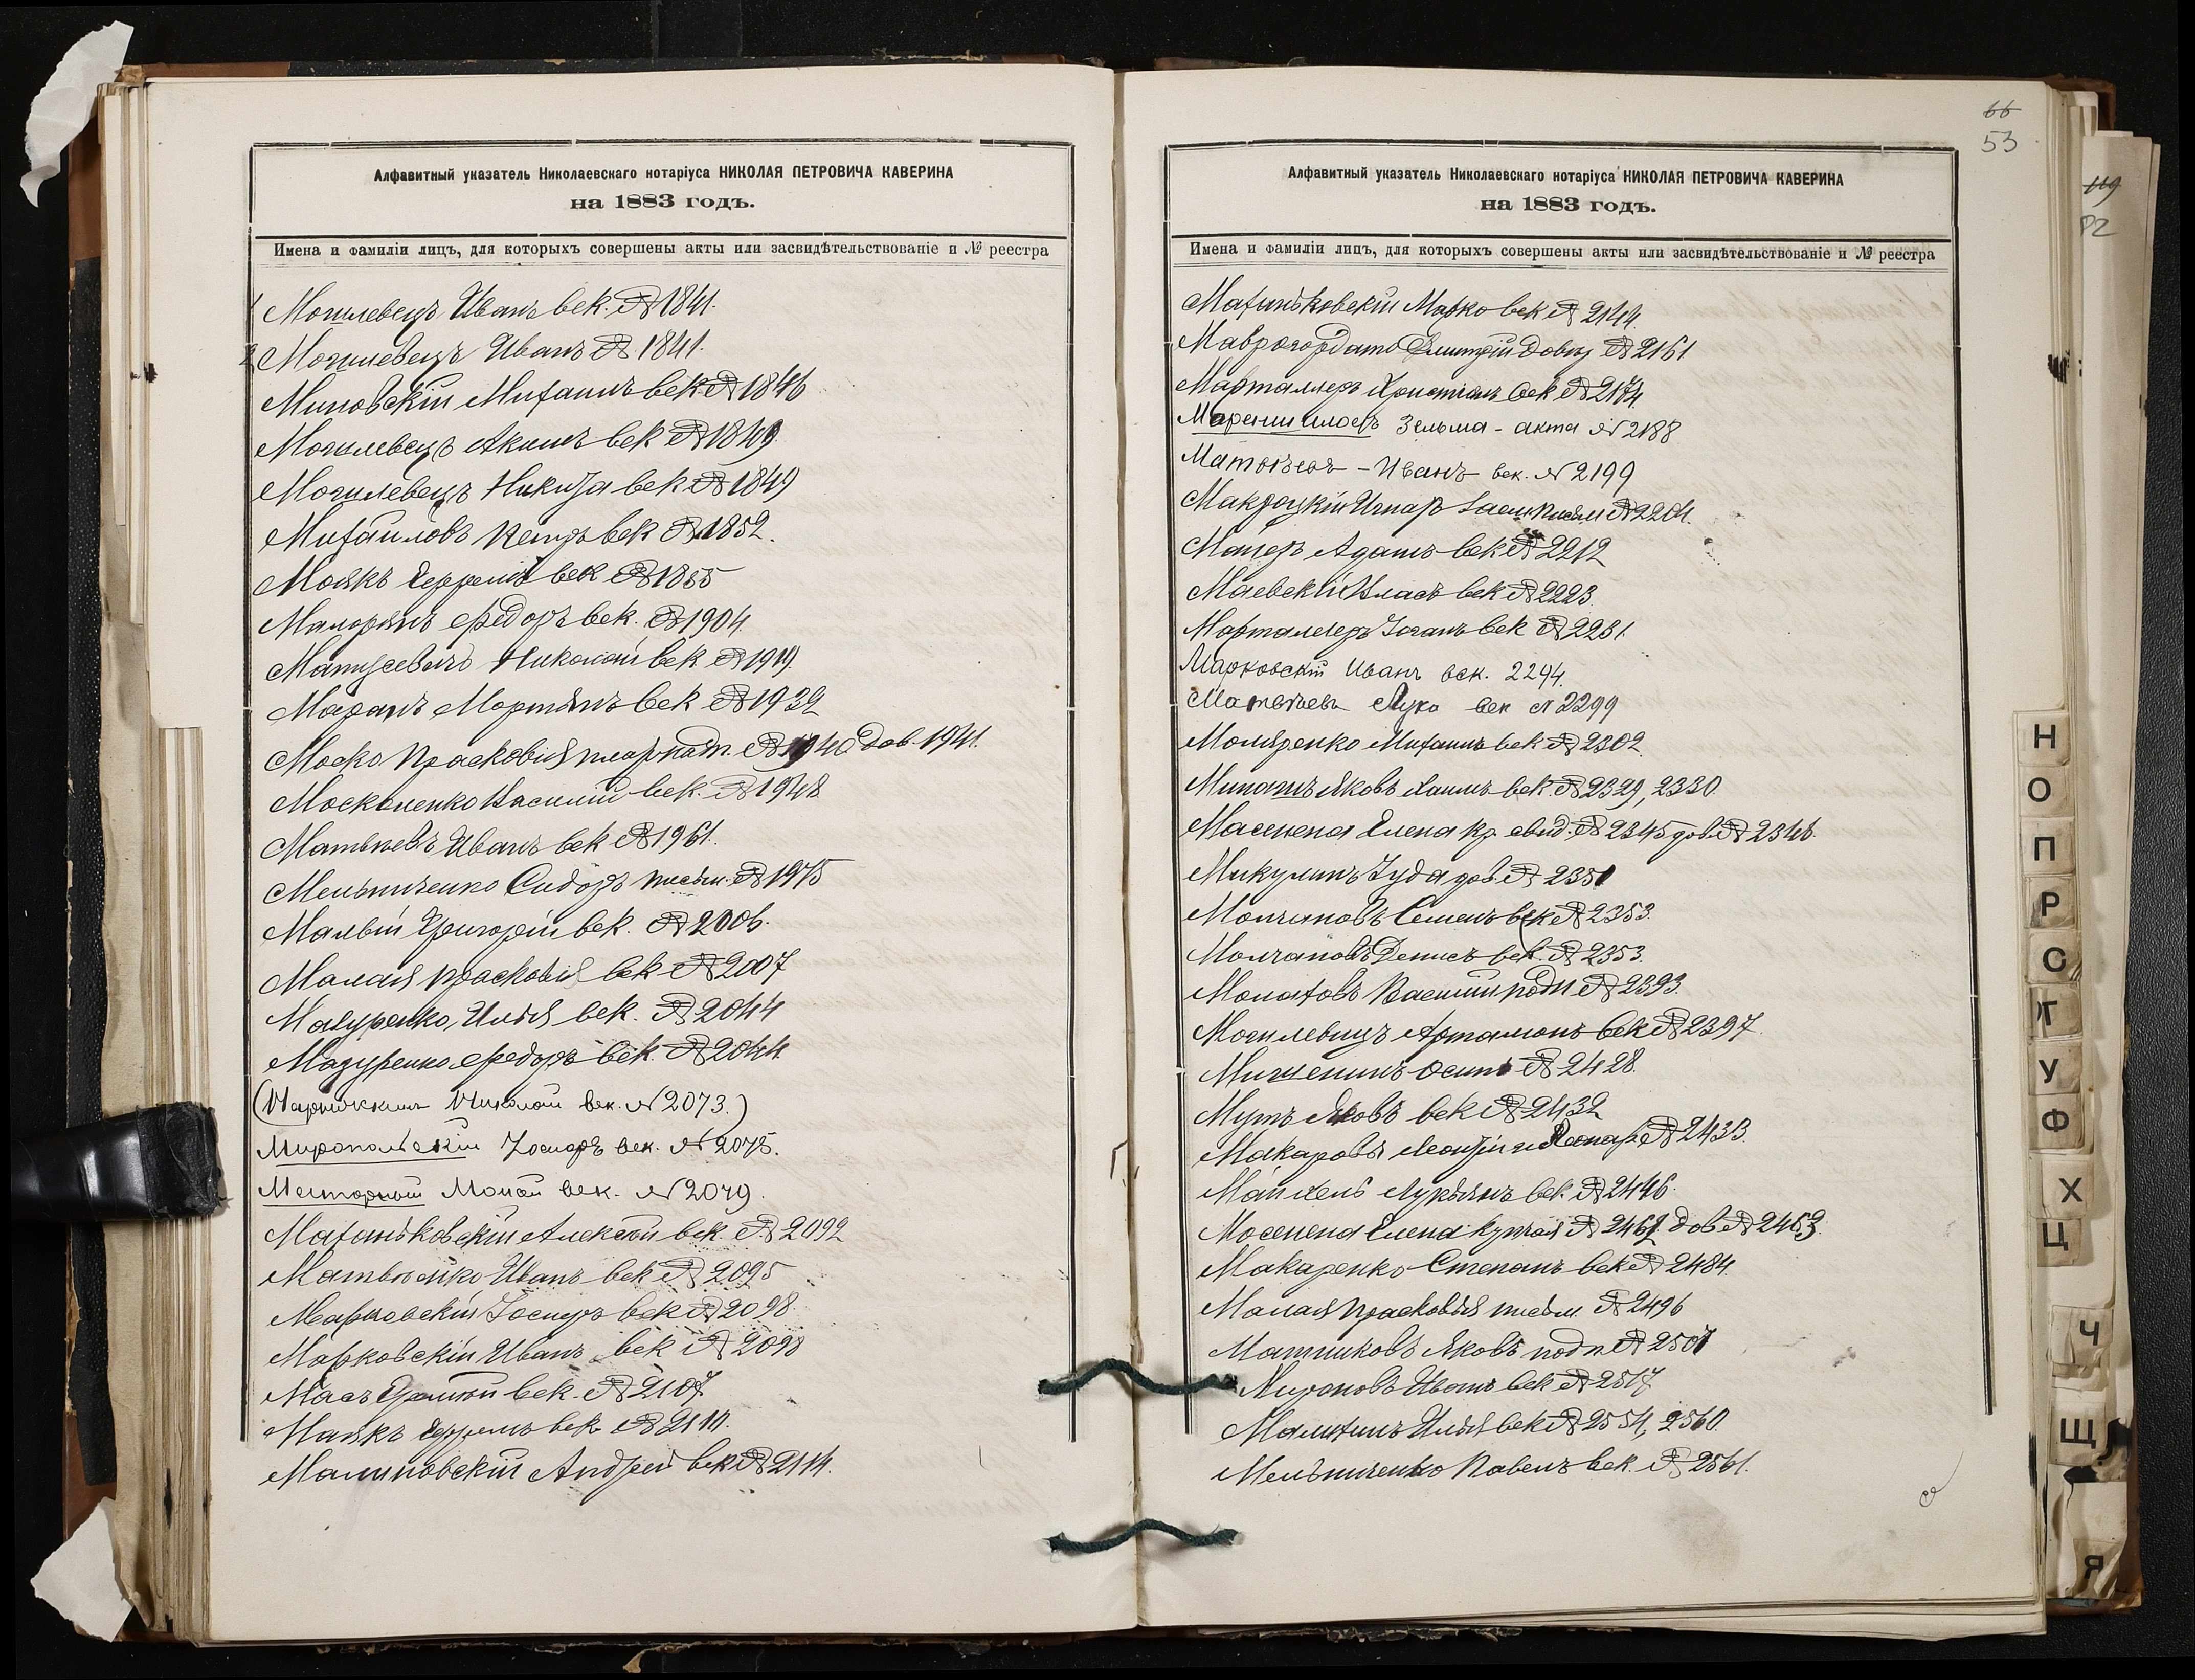 Алфавитный указатель Николаевскаго нотаріуса НИКОЛАЯ ПЕТРОВИЧА КАВЕРИНА
на 1883 годъ.
Имена и фамиліи лицъ, для которыхъ совершены акты или засвидѣтельствованіе и № реестра
Могилевецъ Иванъ век. № 1841.
Могилевецъ Иванъ № 1841.
Миновскій Михаилъ век № 1846
Могилевецъ Акимъ век № 1849
Могилевецъ Никита век № 1849
Михайловъ Петръ век № 1852.
Маякъ Ефремъ век № 1855
Федоръ век. № 1904
Матусевичъ Николай век № 1919
Мартынъ век № 1932
Моско Прасковія № 1940 дов. 1941.
Москаленко Василій век. № 1948
Матвѣевъ Иванъ век № 1961.
Мельниченко Сидоръ письм. № 1975
Малый Григорій век. № 2006.
Малая Прасковія век № 2007
Мазуренко Илья век. № 2044
Мазуренко Федоръ век. № 2044
Николай век. № 2073.)
Миропольскій Іосифъ век. № 2075.
век. № 2079.
Маханьковскій Алексѣй век. № 2092
Матвѣенко Иванъ век № 2095
Марковскій Іосифъ век № 2098.
Марковскій Иванъ век № 2098
Мась век. № 2107.
Маякъ Ефремъ век № 2110.
Малиновскій Андрей век № 2114.
66
53
Алфавитный указатель Николаевскаго нотаріуса НИКОЛАЯ ПЕТРОВИЧА КАВЕРИНА
на 1883 годъ.
Имена и фамиліи лицъ, для которыхъ совершены акты или засвидѣтельствованіе и № реестра
Маханьковскій Марко век № 2144.
Маврогордато Дмитрій довѣр № 2161
Марталлеръ Христіанъ век № 2174.
Зельма - акта № 2188
Матвѣевъ - Иванъ век. № 2199
№ 2204.
Маеръ Адамъ век № 2212
Маевскій Власъ век № 2223.
Марталлеръ Іоганъ век № 2231.
Марковскій Иванъ век. 2294.
Матвѣевъ Лука век № 2299
Моляренко Михаилъ век № 2302.
Яковъ Хаимъ век. № 2329, 2330.
Масенена Елена кр. свид. № 2345 дов. № 2346.
Микулинъ Іуда дов. № 2351
Молчановъ Семенъ век № 2353.
Молчановъ Денисъ век. № 2353.
Василій подп № 2393.
Могилевецъ Артамонъ век № 2397.
Мищенинъ Осипъ № 2428.
Мутъ Яковъ век № 2432
Макаровы Леонтій и № 2433.
Лукьянъ век. № 2446.
Мосенена Елена купчая № 2462 дов № 2463.
Макаренко Степанъ век № 2484.
Малая Прасковья письм. № 2496
Матниковъ Яковъ подп № 2507
Мироновъ Иванъ век № 2517
Малютинъ Илья век № 2554, 2560.
Мельниченко Павелъ век. № 2561.
119
82
Н
О
П
Р
С
Т
У
Ф
Х
Ц
Ч
Щ
Я